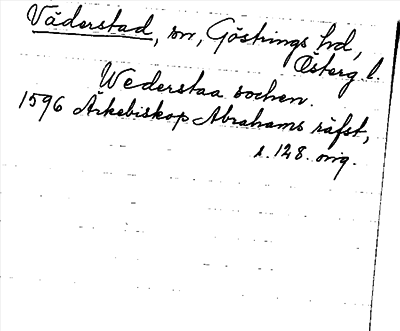 Väderstad, sn, Göstrings hd,
Österg. l.
Wederstaa sochen.
1596 Ärkebiskop Abrahams räfst,
s. 128. orig.